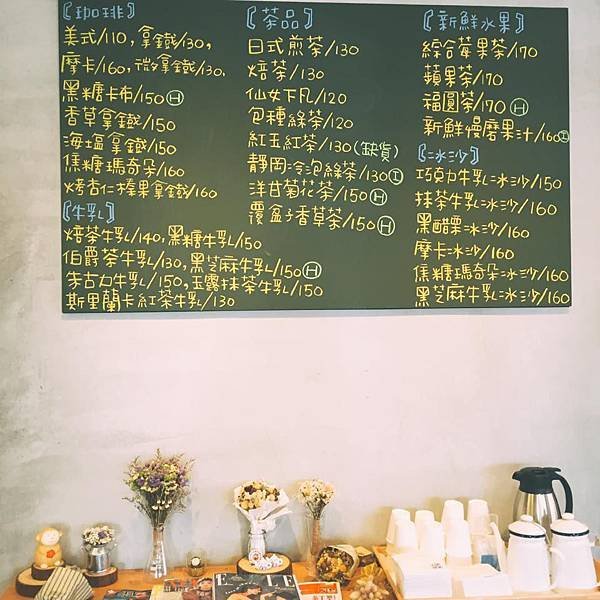 〖珈琲〗
美式/110, 拿鐵/130,
摩卡/160, 微拿鐵/130.
黑糖卡布/150 Ⓗ
香草拿鐵/150
海塩拿鐵/150
焦糖瑪奇朵/160
烤杏仁榛果拿鐵/160
〖牛乳〗
焙茶牛乳/140, 黑糖牛乳/150
伯爵茶牛乳/130, 黑芝麻牛乳/150 Ⓗ
朱古力牛乳/150, 玉露抹茶牛乳/150
斯里蘭卡紅茶牛乳/130
〖茶品〗
日式煎茶/130
焙茶/130
仙女下凡/120
包種綠茶/120
紅玉紅茶/130(缺貨)
靜岡冷泡綠茶/130 Ⓘ
洋甘菊花茶/150 Ⓗ
覆盆子香草茶/150 Ⓗ
〖新鮮水果〗
綜合莓果茶/170
蘋果茶/170
福圓茶/170 Ⓗ
新鮮慢磨果汁/160 Ⓘ
〖冰沙〗
巧克力牛乳冰沙/150
抹茶牛乳冰沙/160
黑醋栗冰沙/160
摩卡冰沙/160
焦糖瑪奇朵冰沙/160
黑芝麻牛乳冰沙/160
ELLE